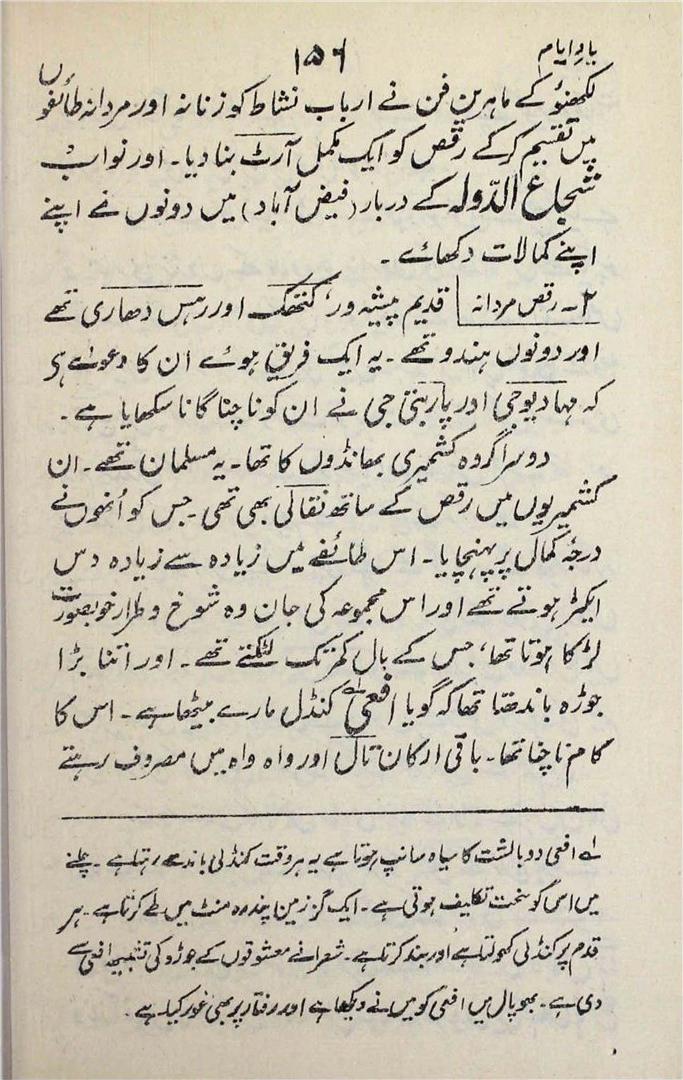 یادِ ایام
۱۵۶
لکھنؤ کے ماہرینِ فن نے ارباب نشاط کو زنانہ اور مردانہ طائفوں
میں تقسیم کرکے رقص کو ایک مکمل آرٹ بنا دیا۔ اور نواب
شجاع الدّولہ کے دربار (فیض آباد) میں دونوں نے اپنے
اپنے کمالات دکھائے۔
۲۔ رقص مردانہ قدیم پیشہ ور، کتھک اور رہس دھاری تھے
اور دونوں ہندو تھے۔ یہ ایک فریق ہوئے ان کا دعوےٰ ہی
کہ مہادیوجی اور پاربتی جی نے ان کو ناچنا گانا سکھایا ہے۔
دوسرا گروہ کشمیری بھانڈوں کا تھا۔ یہ مسلمان تھے۔ ان
کشمیریوں میں رقص کے ساتھ نقالی بھی تھی۔ جس کو اُنھوں نے
درجۂ کمال پر پہنچایا۔ اس طائفے میں زیادہ سے زیادہ دس
ایکٹر ہوتے تھے اور اس مجموعہ کی جان وہ شوخ و طرار خوبصورت
لڑکا ہوتا تھا، جس کے بال کمر تک لٹکتے تھے۔ اور اتنا بڑا
جوڑہ باندھتا تھا کہ گویا افعی لہ کنڈل مارے بیٹھا ہے۔ اس کا
کام ناچنا تھا۔ باقی ارکان تال اور واہ واہ میں مصروف رہتے
لہ افعی دو بالشت کا سیاہ سانپ ہوتا ہے یہ ہر وقت کنڈلی باندھے رہتا ہے۔ چلنے
میں اس کو سخت تکلیف ہوتی ہے۔ ایک گز زمین پندرہ منٹ میں طے کرتا ہے۔ ہر
قدم پر کنڈلی کھولتا ہے اور بند کرتا ہے۔ شعرا نے معشوقوں کے جوڑو کی تشبیہ افعی سے
دی ہے۔ بھوپال میں افعی کو میں نے دیکھا ہے اور رفتار پر بھی غور کیا ہے۔